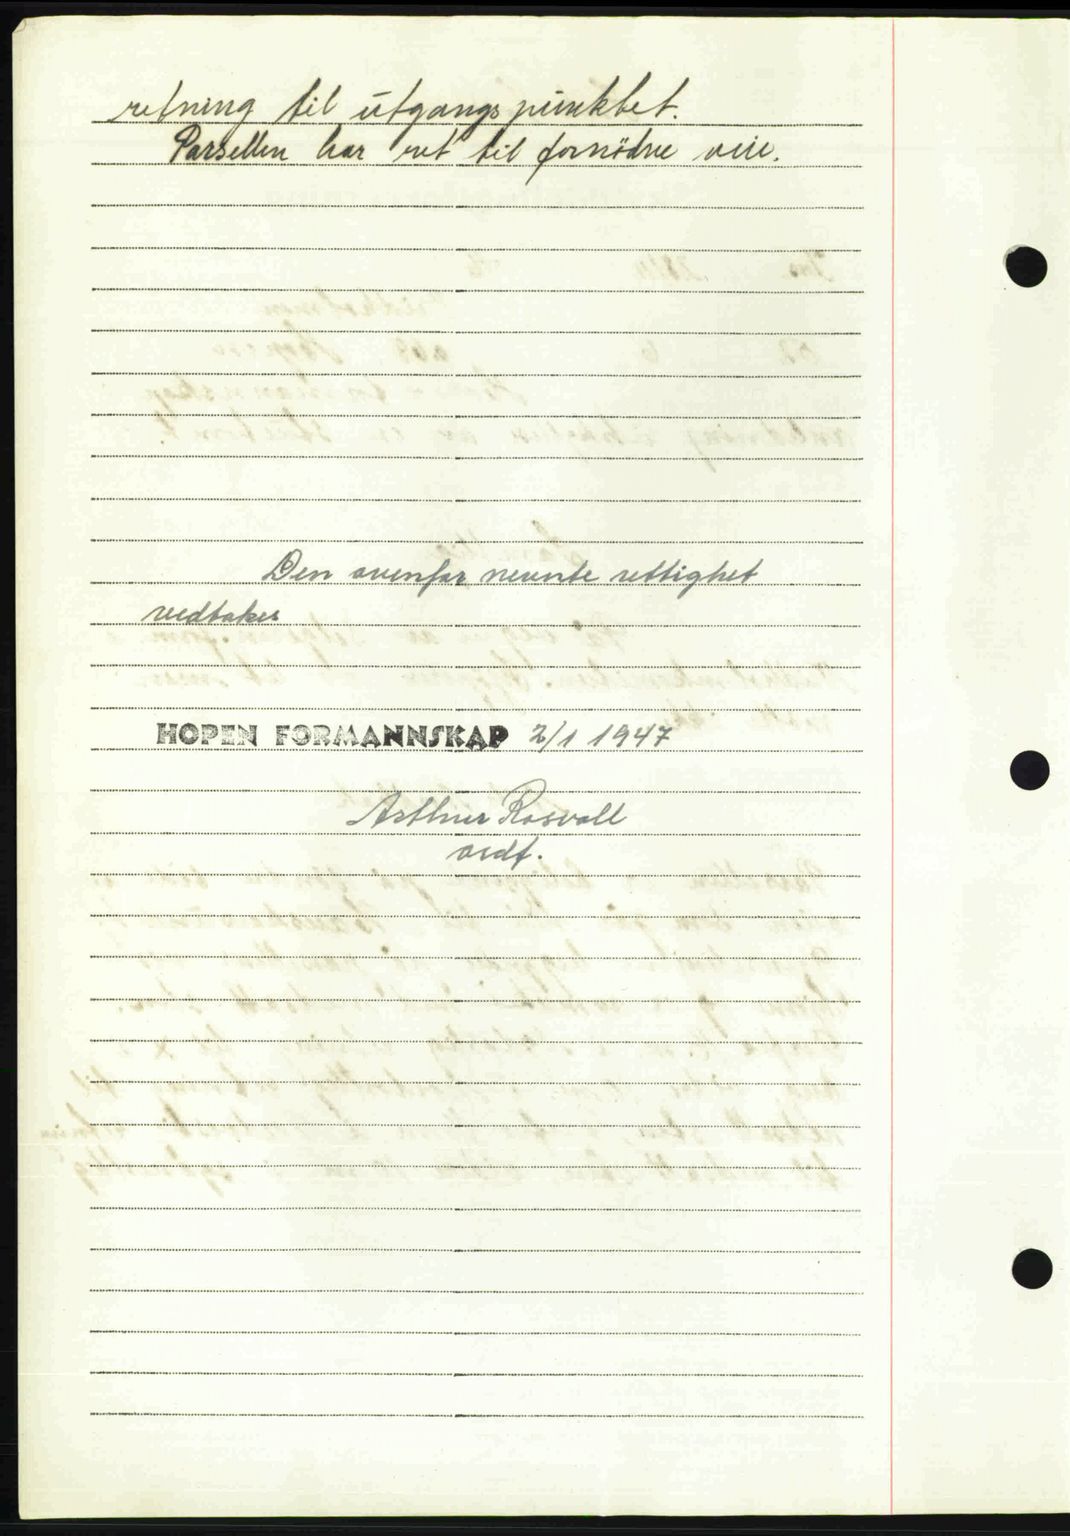 retning til utgangspunktet.
Parsellen har ret til fornødne veie.
Den ovenfor nevnte rettighet
vedtakes
HOPEN FORMANNSKAP 2/1 1947
Arthur Rosvoll
ordf.